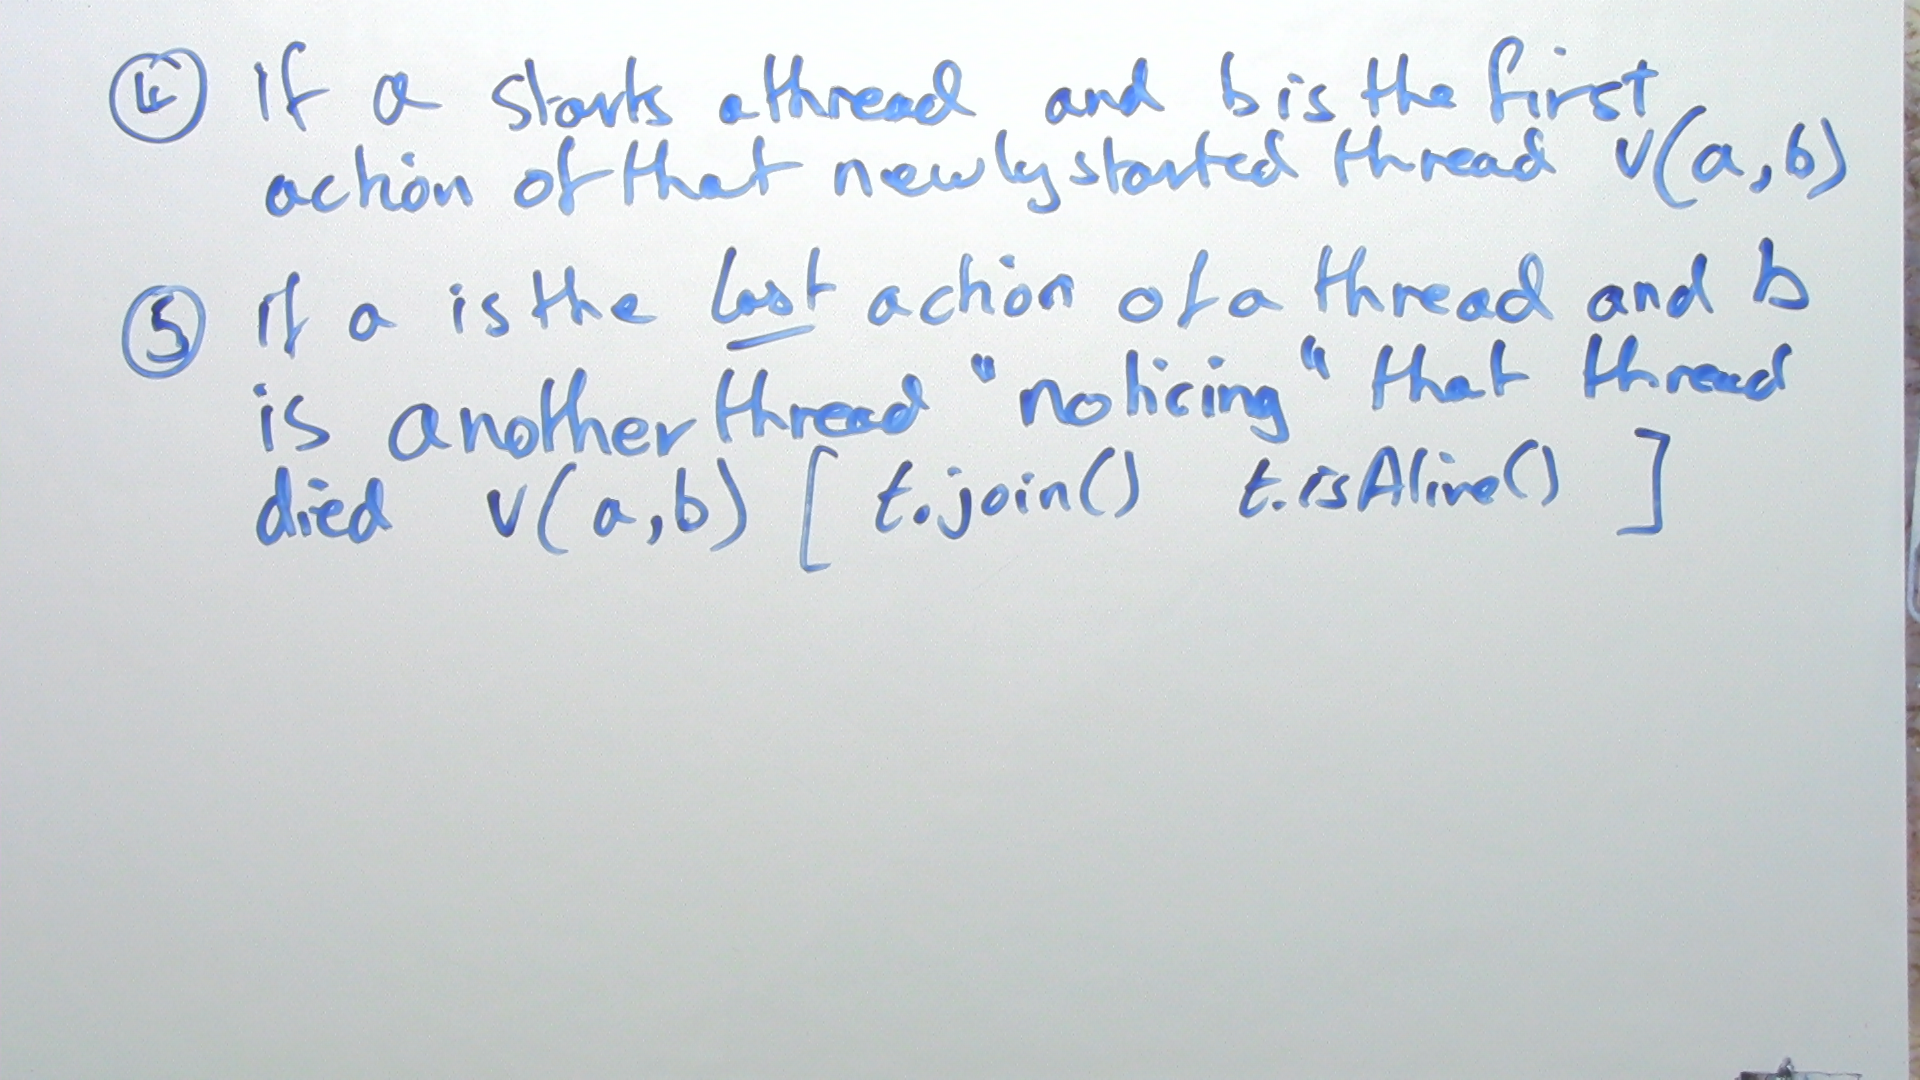 ④ If a starts a thread and b is the first
action of that newly started thread v(a,b)
⑤ if a is the last action of a thread and b
is another thread "noticing" that thread
died v(a,b) [ t.join() t.isAlive() ]